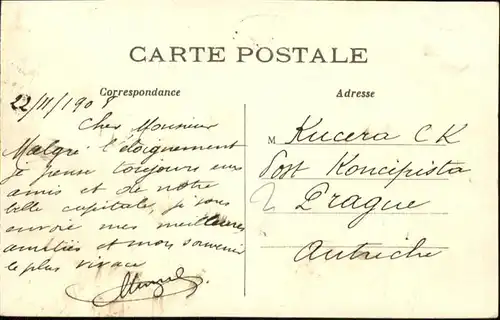 CARTE POSTALE
Correspondance
Adresse
22/11/1908
Cher Monsieur
Malgré l'éloignement
je pense toujours aux
amis et de notre
belle capitale, je vous
envoie mes meilleures
amitiés et mon souvenir
le plus vivace
M Kucera CK
Post Koncipista
Prague
Autriche